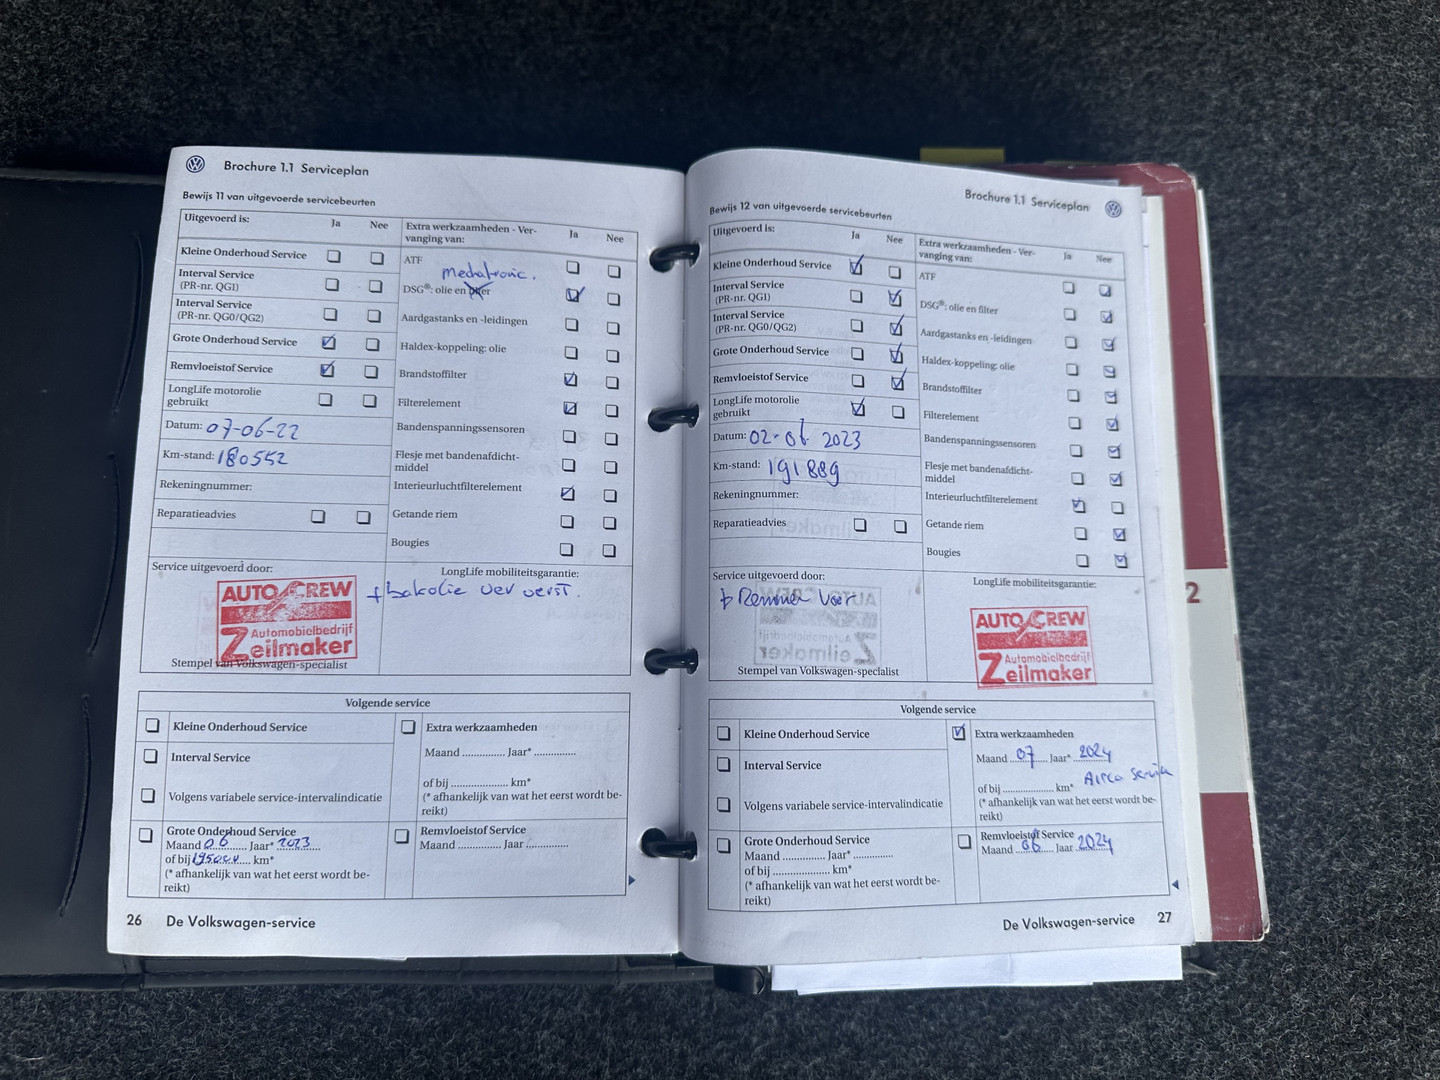 Brochure 1.1 Serviceplan
Bewijs 11 van uitgevoerde servicebeurten
Uitgevoerd is:
Ja
Nee
Kleine Onderhoud Service
Interval Service
(PR-nr. QG1)
Interval Service
(PR-nr. QG0/QG2)
Grote Onderhoud Service
Remvloeistof Service
LongLife motorolie
gebruikt
Datum: 07-06-22
Km-stand: 180552
Rekeningnummer:
Reparatieadvies
Extra werkzaamheden - Ver-
vanging van:
Ja
Nee
ATF
Mechatronic.
DSG®: olie en filter
Aardgastanks en -leidingen
Haldex-koppeling: olie
Brandstoffilter
Filterelement
Bandenspanningssensoren
Flesje met bandenafdicht-
middel
Interieurluchtfilterelement
Getande riem
Bougies
Service uitgevoerd door:
AUTO CREW
Automobielbedrijf
Zeilmaker
Stempel van Volkswagen-specialist
LongLife mobiliteitsgarantie:
+bakolie ververst.
Volgende service
Kleine Onderhoud Service
Interval Service
Volgens variabele service-intervalindicatie
Grote Onderhoud Service
Maand 06 Jaar* 2023
of bij km*
(* afhankelijk van wat het eerst wordt be-
reikt)
Extra werkzaamheden
Maand .............. Jaar* ..............
of bij ................... km*
(* afhankelijk van wat het eerst wordt be-
reikt)
Remvloeistof Service
Maand ............. Jaar ..............
26 De Volkswagen-service
Brochure 1.1 Serviceplan
Bewijs 12 van uitgevoerde servicebeurten
Uitgevoerd is:
Ja
Nee
Kleine Onderhoud Service
Interval Service
(PR-nr. QG1)
Interval Service
(PR-nr. QG0/QG2)
Grote Onderhoud Service
Remvloeistof Service
LongLife motorolie
gebruikt
Datum: 02-06-2023
Km-stand: 191.889
Rekeningnummer:
Reparatieadvies
Extra werkzaamheden - Ver-
vanging van:
Ja
Nee
ATF
DSG®: olie en filter
Aardgastanks en -leidingen
Haldex-koppeling: olie
Brandstoffilter
Filterelement
Bandenspanningssensoren
Flesje met bandenafdicht-
middel
Interieurluchtfilterelement
Getande riem
Bougies
Service uitgevoerd door:
+ Remmen voor
Stempel van Volkswagen-specialist
LongLife mobiliteitsgarantie:
AUTO CREW
Automobielbedrijf
Zeilmaker
Volgende service
Kleine Onderhoud Service
Interval Service
Volgens variabele service-intervalindicatie
Grote Onderhoud Service
Maand .............. Jaar* ..............
of bij ................... km*
(* afhankelijk van wat het eerst wordt be-
reikt)
Extra werkzaamheden
Maand 07 Jaar* 2024
Airco Service
of bij ................... km*
(* afhankelijk van wat het eerst wordt be-
reikt)
Remvloeistof Service
Maand 06 Jaar 2024
De Volkswagen-service 27
2